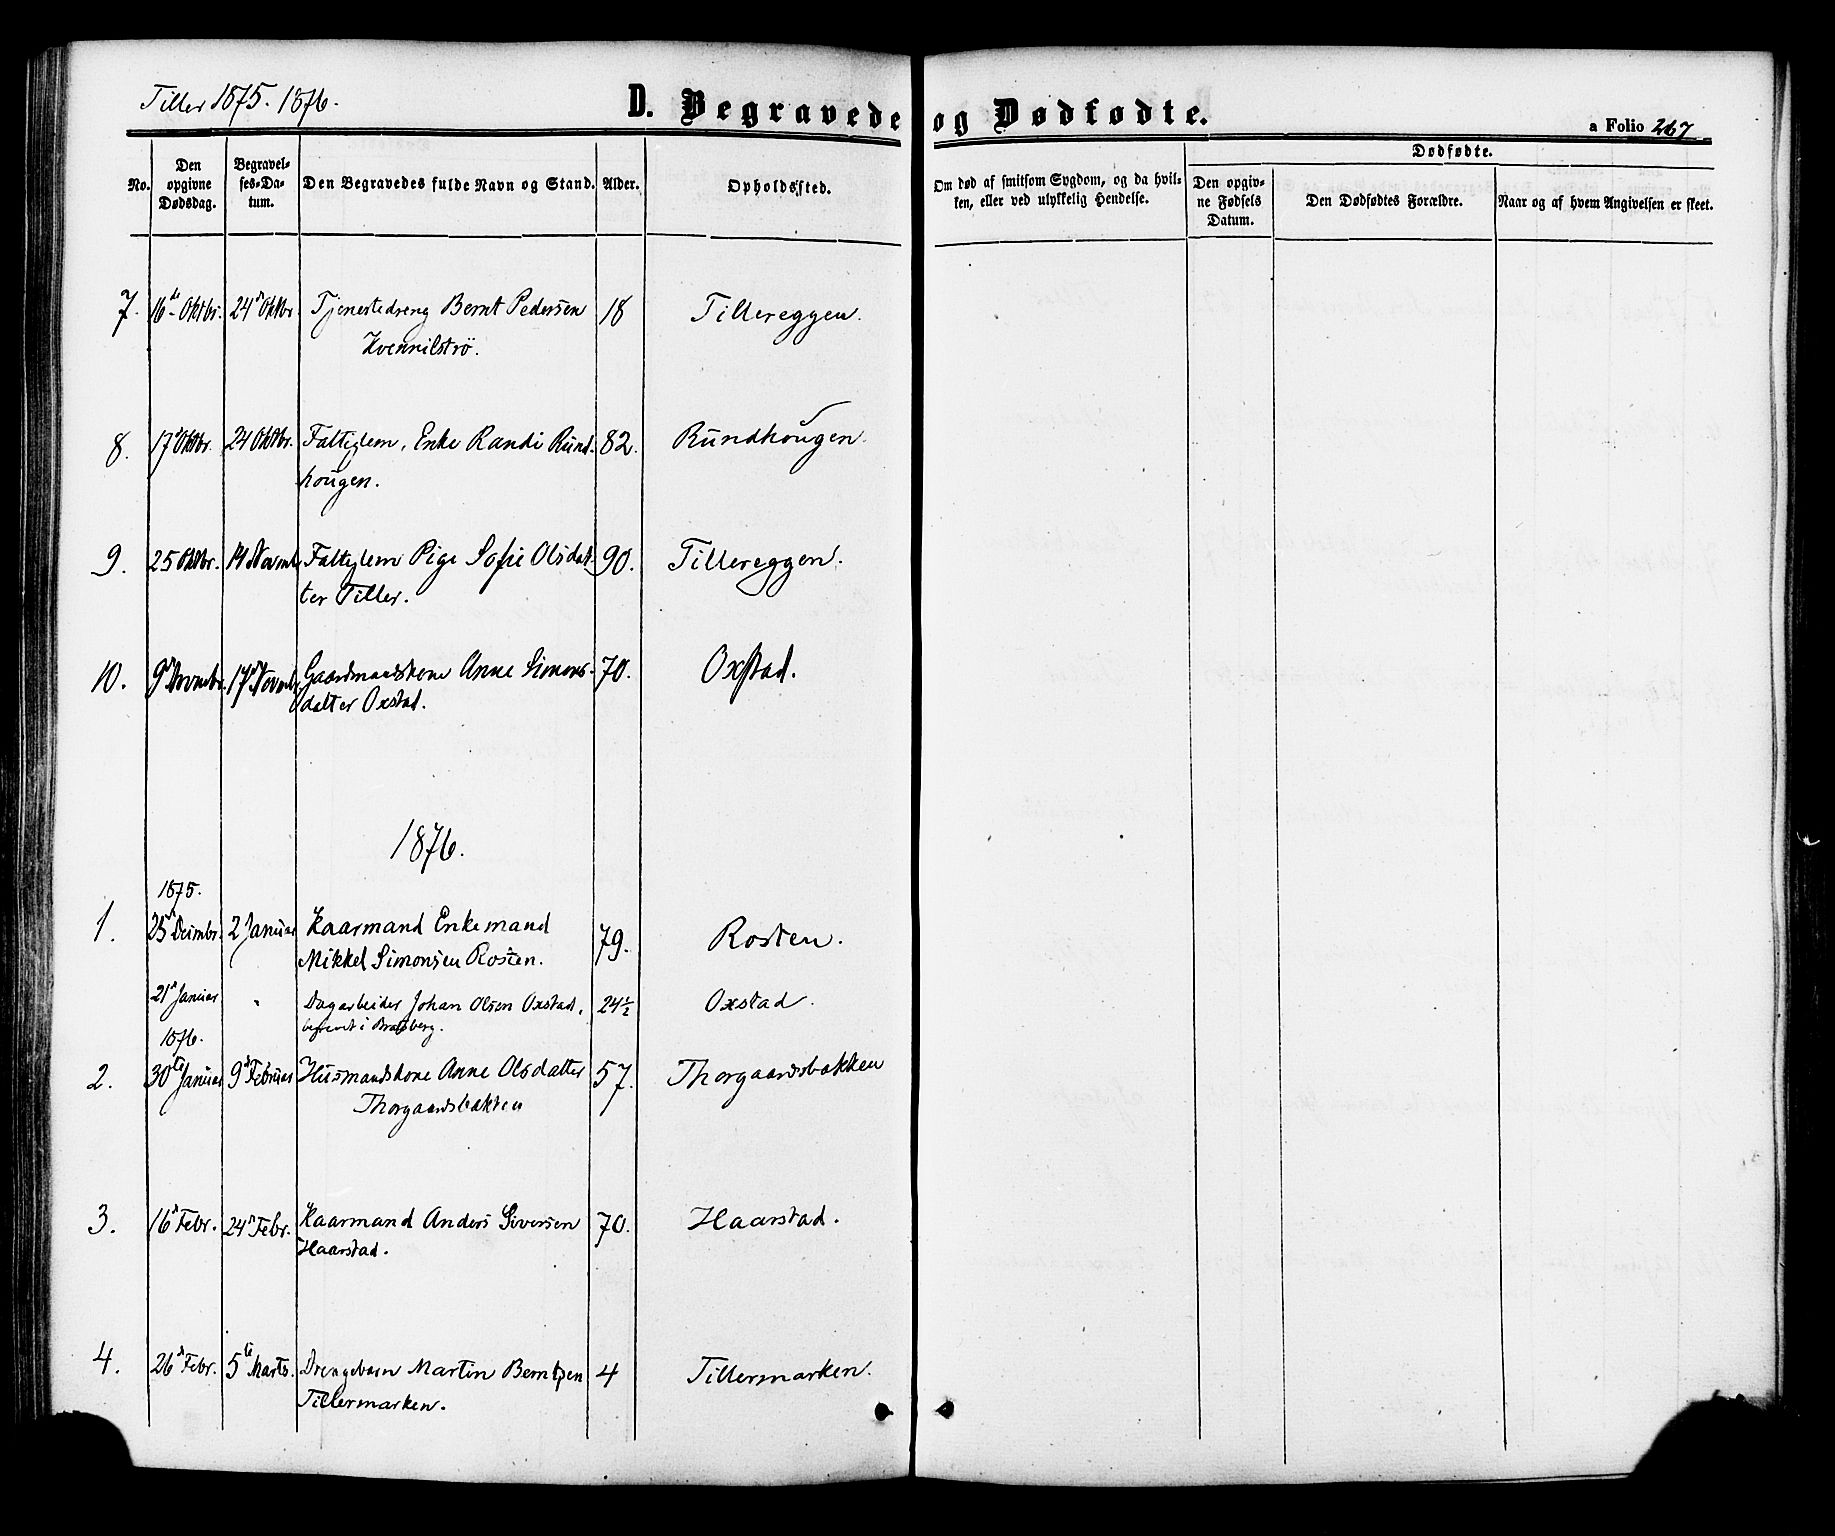 Tiller 1875. 1876.
D. Begravede og Dødfødte.
a Folio 267
No.
Den opgivne Dødsdag.
Begravelses-Datum.
Den Begravedes fulde Navn og Stand.
Alder.
Opholdssted.
Om død af smitsom Sygdom, og da hvilken, eller ved ulykkelig Hendelse.
Dødfødte.
Den opgivne Fødsels Datum.
Den Dødfødtes Forældre.
Naar og af hvem Angivelsen er skeet.
7. 16de Oktbr. 24d Oktbr. Tjenestedreng Bernt Pedersen 18 Tillereggen.
8. 17d Oktbr. 24 Oktbr. Fattiglem, Enke Randi Rund- 82. Rundhougen.
hougen.
9. 25 Oktbr. 14 Novmb Fattiglem Pige Sofie Olsdat- 90. Tillereggen.
ter Tiller.
10. 9d Novmbr. 17d Novmb Gaardmandskone Anne Simons- 70. Oxstad.
datter Oxstad.
1876.
1875.
1. 25d Decmbr. 2 Januar Kaarmand Enkemand 79. Rosten.
Mikkel Simonsen Rosten.
21d Januar " Dagarbeider Johan Olsen Oxstad. 24½ Oxstad.
1876. begravet i Bratsberg.
2. 30te Januar 9d Februar Husmandskone Anne Olsdatter 57. Thorgaardsbakken
Thorgaardsbakken
3. 16d Febr. 24d Febr. Kaarmand Anders Siversen 70. Haarstad.
Haarstad.
4. 26d Febr. 5te Marts. Drengebarn Martin Berntsen 4 Tillermarken.
Tillermarken.